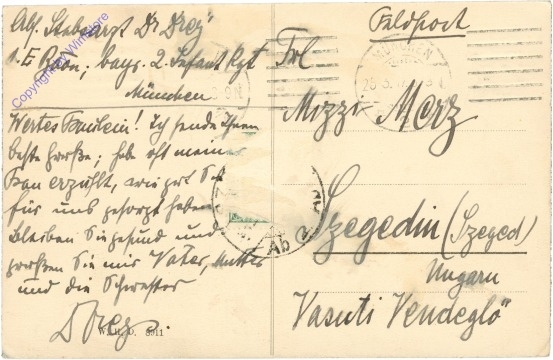 Abs. Stabsarzt Dr Drey
1. E Baon; bayr. 2. Infant Rgt
München
Wertes Fräulein! Ich sende Ihnen
beste Grüße; habe oft meiner
Frau erzählt, wie gut Sie
für uns gesorgt haben
Bleiben Sie gesund und
grüßen Sie mir Vater, Mutter
und die Schwester
Drey
W.H.D. 8911
Feldpost
MÜNCHEN
Frl
Mizzi Merz
Szegedin (Szeged)
Ungarn
Vasuti Vendeglö